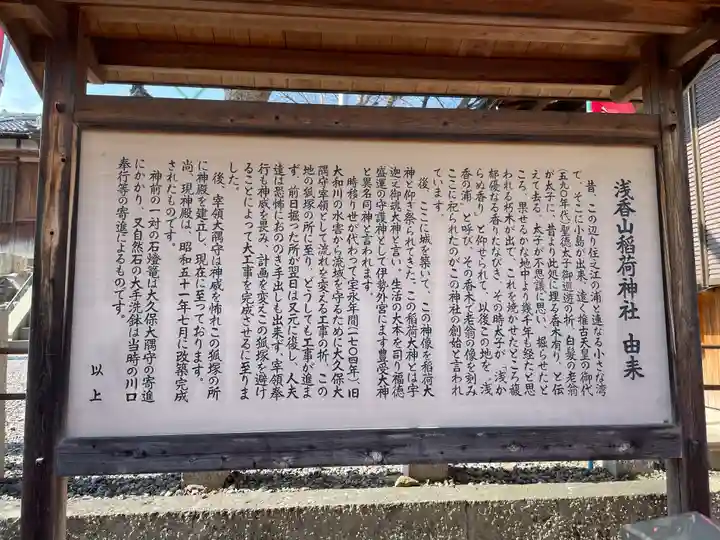 浅香山稲荷神社 由来
昔、この辺り住之江の浦と連なる小さな湾
で、そこに小島が出来、遠く推古天皇の御代
(五九〇年代)聖徳太子御巡遊の折、白髪の老翁
が太子に、昔より此処に埋る香木有り、と伝
えて去る。太子が不思議に思い、掘らせたと
ころ、果せるかな地中より幾千年も経たと思
われる朽木が出て、これを焼かせたところ馥
郁優なる香りたなびき、その時太子が、浅か
らぬ香り、と仰せられて、以後この地を、浅
香の浦、と呼び、その香木で老翁の像を刻み
ここに祀られたのがこの神社の創始と言われ
ています。
後、ここに城を築いて、この神像を稲荷大
神と仰ぎ祭られてきた。この稲荷大神とは宇
迦之御魂大神と言い、生活の大本を司り福徳
盛運の守護神として伊勢外宮にます豊受大神
と異名同神と言われます。
時移り世が代わって宝永年間(一七〇四年)旧
大和川の水害から流域を守るために大久保大
隅守宰領として流れを変える工事の折、この
地の狐塚の所に至り、どうしても工事が進ま
ず、前日掘った所が翌日は又元に復し、人夫
達は恐怖におののき手出しも出来ず、宰領奉
行も神威を畏み、計画を変えこの狐塚を避け
ることによって大工事を完成させるに至りま
した。
後、宰領大隅守は神威を怖れこの狐塚の所
に神殿を建立し、現在に至っております。
尚、現神殿は、昭和五十一年七月に改築完成
されたものです。
神前の一対の石燈篭は大久保大隅守の寄進
にかかり、又自然石の大手洗鉢は当時の川口
奉行等の寄進によるものです。
以上